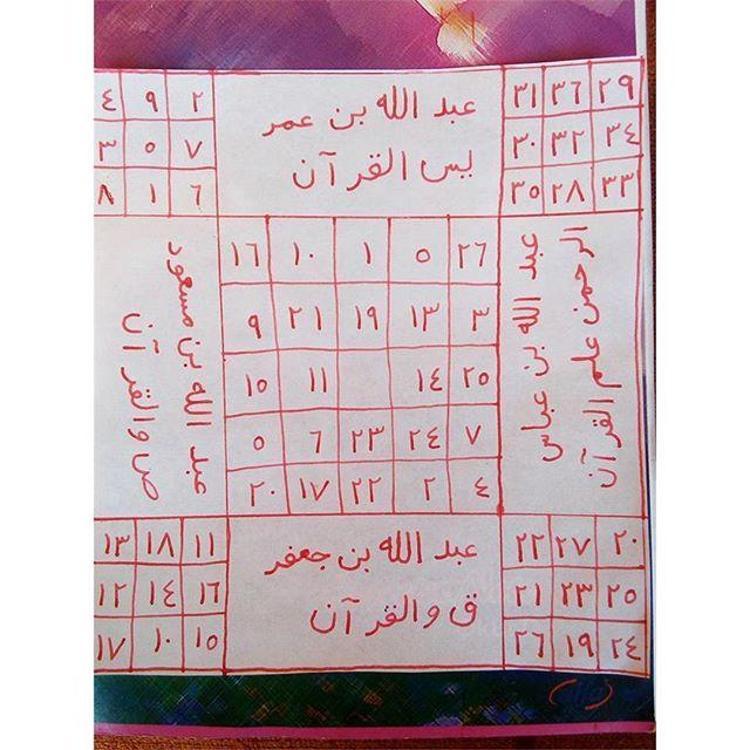 ٢٩ ٣٦ ٣١
٣٤ ٣٢ ٣٠
٣٣ ٢٨ ٣٥
عبد الله بن عمر
يس القرآن
٢ ٩ ٤
٧ ٥ ٣
٦ ١ ٨
الرحمن علم القرآن
عبد الله بن عباس
٢٦ ٥ ١ ١٠ ١٦
٣ ١٣ ١٩ ٢١ ٩
٢٥ ١٤ ١١ ١٥
٧ ٢٤ ٢٣ ٦ ٥
٤ ٢ ٢٢ ١٧ ٢٠
عبد الله بن مسعود
ص والقرآن
٢٠ ٢٧ ٢٢
٢٥ ٢٣ ٢١
٢٤ ١٩ ٢٦
عبد الله بن جعفر
ق والقرآن
١١ ١٨ ١٣
١٦ ١٤ ١٢
١٥ ١٠ ١٧